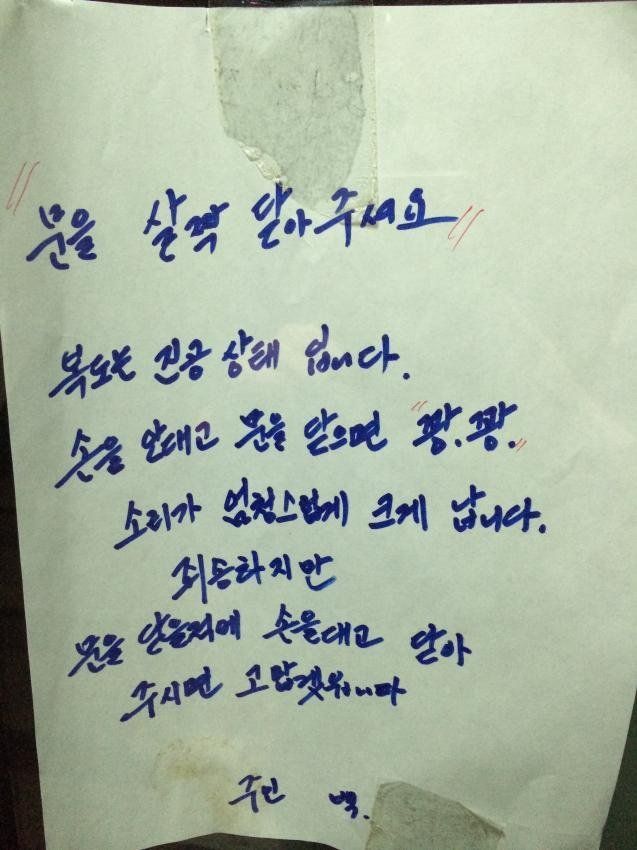 "문을 살짝 닫아 주세요"
복도는 진공 상태 입니다.
손을 안대고 문을 닫으면 "꽝.꽝."
소리가 엄청스럽게 크게 납니다.
죄송하지만
문을 닫을적에 손을대고 닫아
주시면 고맙겠습니다
주민 백.